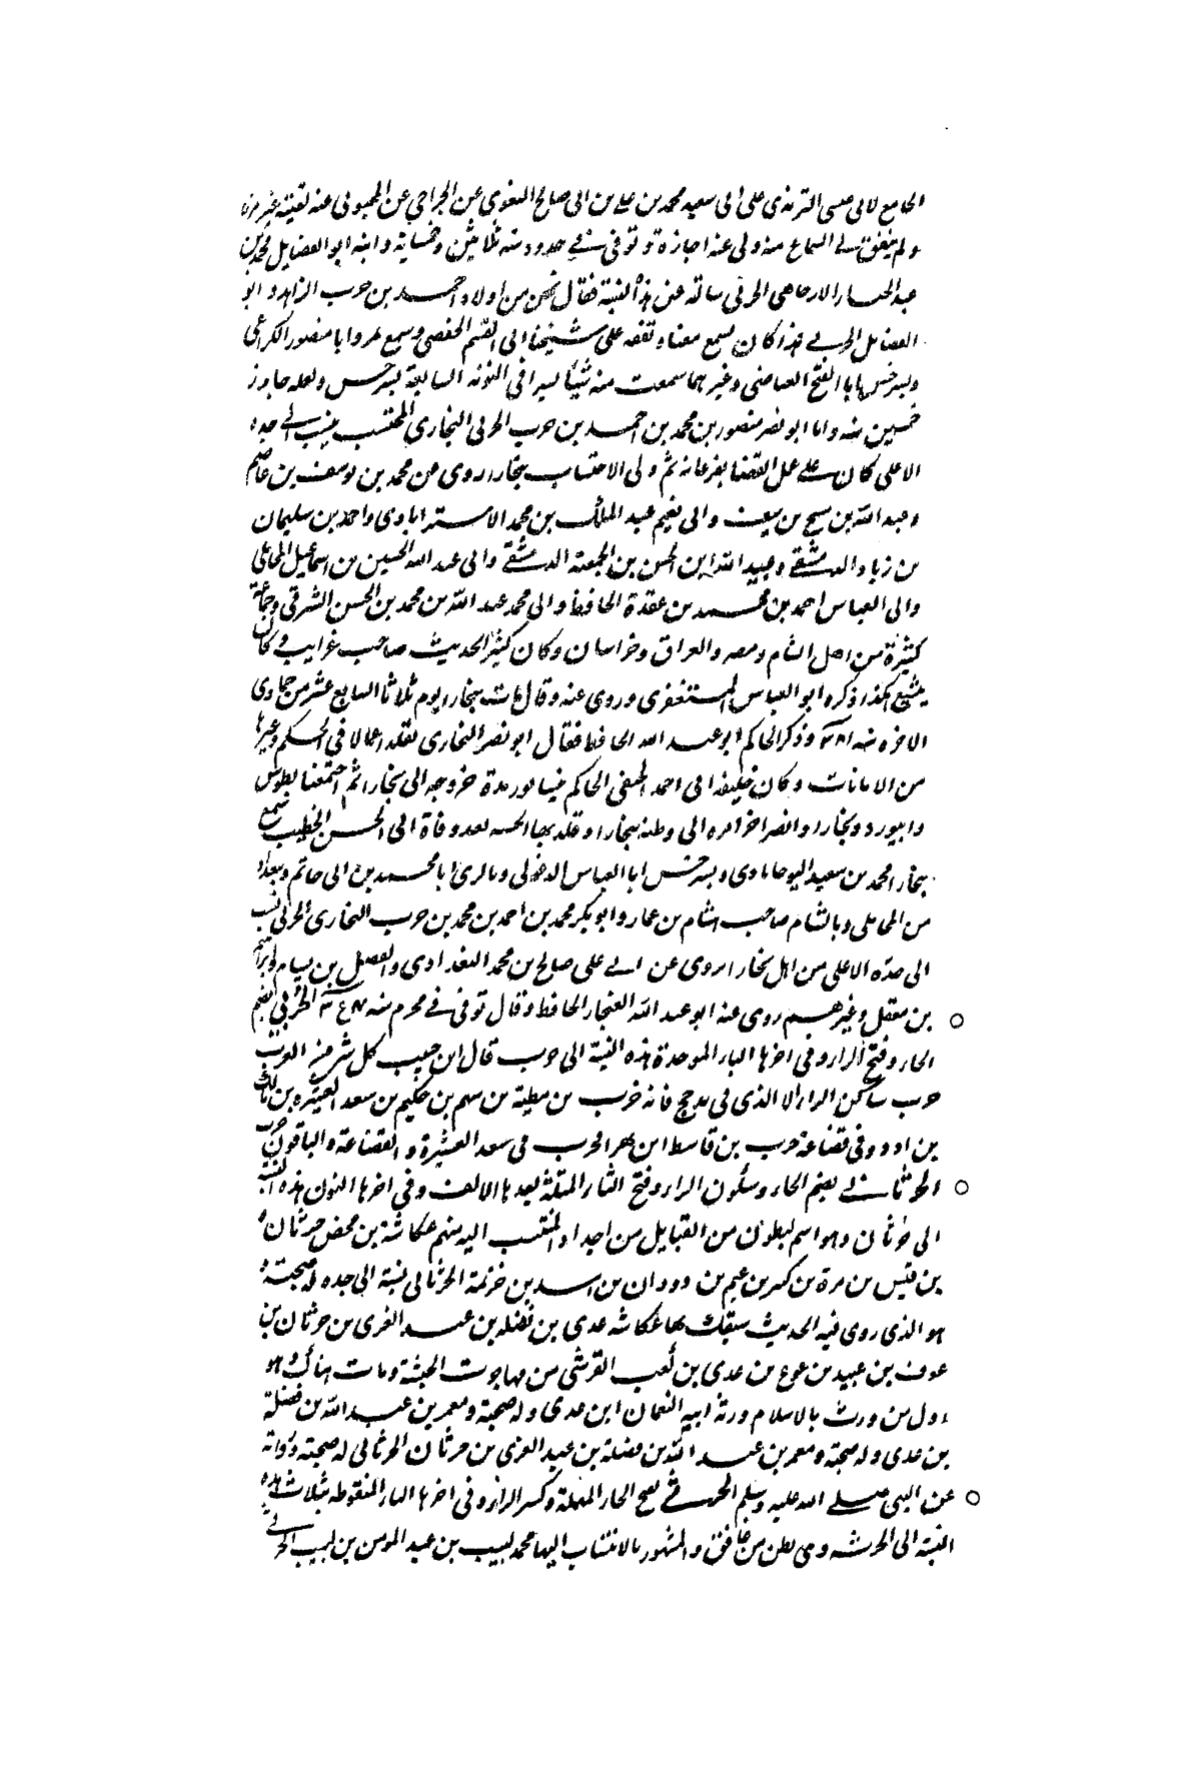 الجامع لابى عيسى الترمذى على ابى سعيد محمد بن على بن ابى صالح البغوى عن الجراحى عن المحبوبى عنه لقيته غير مرة
ولم يتفق لى السماع منه ولى عنه اجازة وتوفى فى حدود سنة ثلاثين وخمسماية وابنه ابو الفضايل محمد بن
عبد الجبار الحربى سالته عن هذه النسبة فقال نحن من اولاد احمد بن حرب الزاهد وابو
الفضايل الحربى هذا كان يسمع معنا وتفقه على شيخنا ابى القسم الحفصى وسمع بمرو ابا منصور الكراعى
وبسرخس ابا الفتح العياضى وغيرهما سمعت منه شيئا يسيرا فى النوبة السابعة بسرخس ولعله جاوز
خمسين سنة واما ابو نصر منصور بن محمد بن احمد بن حرب الحربى البخارى المحتسب ينسب الى جده
الاعلى كان على عمل القضا بفرغانه ثم ولى الاحتساب ببخارا روى عن محمد بن يوسف بن عاصم
وعبد الله بن وابى نعيم عبد الملك بن محمد الاسترابادى واحمد بن سليمان
بن زبا الدمشقى وعبيد الله ابن الحسن بن الجمعة الدمشقى وابى عبد الله الحسين بن اسماعيل المحاملى
وابى العباس احمد بن محمد بن عقدة الحافظ وابى محمد عبد الله بن محمد بن الحسن الشرقى وجماعة
كثيرة من اهل الشام ومصر والعراق وخراسان وكان كثير الحديث صاحب غرايب وكان
يتشيع هكذا ذكره ابو العباس المستغفرى وروى عنه وقال مات ببخارا يوم ثلاثا السابع عشر من جمادى
الاخره سنه ٣٨١ وذكر الحاكم ابو عبد الله الحافظ فقال ابو نصر البخارى تقلد اعمالا فى الحكم وغيرها
من الامانات وكان خليفه ابى احمد الحنفى الحاكم بنيسابور مدة خروجه الى بخارا ثم اجتمعنا بطوس
وابيورد وبخارا وانصرف اخر امره الى وطنه ببخارا وقلد بها الحسبه بعد وفاة ابى الحسن الخطيب سمع
ببخارا محمد بن سعيد وبسرخس ابا العباس الدغولى وبالرى ابا محمد بن ابى حاتم وببغداد
من المحاملى وبالشام صاحب هشام بن عمار وابو بكر محمد بن احمد بن محمد بن حرب البخارى الحربى نسب
الى جده الاعلى من اهل بخارا روى عن ابى على صالح بن محمد البغدادى والفضل بن بسام وابراهيم
بن معقل وغيرهم روى عنه ابو عبد الله الغنجار الحافظ وقال توفى فى محرم سنه الحربى بضم
الحا وفتح الرا وفى اخرها البا الموحدة هذه النسبة الى حرب قال ابن حبيب كل شى من العرب
حرب ساكن الرا الا الذى فى مذحج فانه حرب بن مظة بن سهم بن حكيم بن سعد العشيره بن مالك
بن ادد وفى قضاعة حرب بن قاسط ابن بهر الحرب فى سعد العشيرة والقضاعة والباقون حرب
الحرثانى بضم الحاء وسكون الراء وفتح الثاء المثلثة بعدها الالف وفى اخرها النون هذه النسبة
الى حرثان وهو اسم لبطون من القبايل من اجداد المنتسب اليه منهم عكاشة بن محصن حرثان
بن قيس بن مرة بن كبير بن غنم بن دودان بن اسد بن خزيمة الحرثانى نسبة الى جده له صحبة
هو الذى روى فيه الحديث سبقك بها عكاشه عدى بن نضله بن عبد العزى بن حرثان بن
عوف بن عبيد بن عوع بن عدى بن كعب القرشى من مهاجرت الحبشة ومات هناك وهو
اول من ورث بالاسلام ورثه ابيه النعمان ابن عدى وله صحبة ومعمر بن عبد الله بن نضلة
بن عدى وله صحبة ومعمر بن عبد الله بن نضلة بن عبد العزى بن حرثان الحرثانى له صحبة ورواة
عن النبى صلى الله عليه وسلم الحرثى بفتح الحاء المهملة وكسر الراء وفى اخرها الثاء المنقوطه بثلاث هذه
النسبة الى الحرث وهى بطن من غافق والمشهور بالانتساب اليها محمد لبيب بن عبد المومن بن لبيب الحرثى